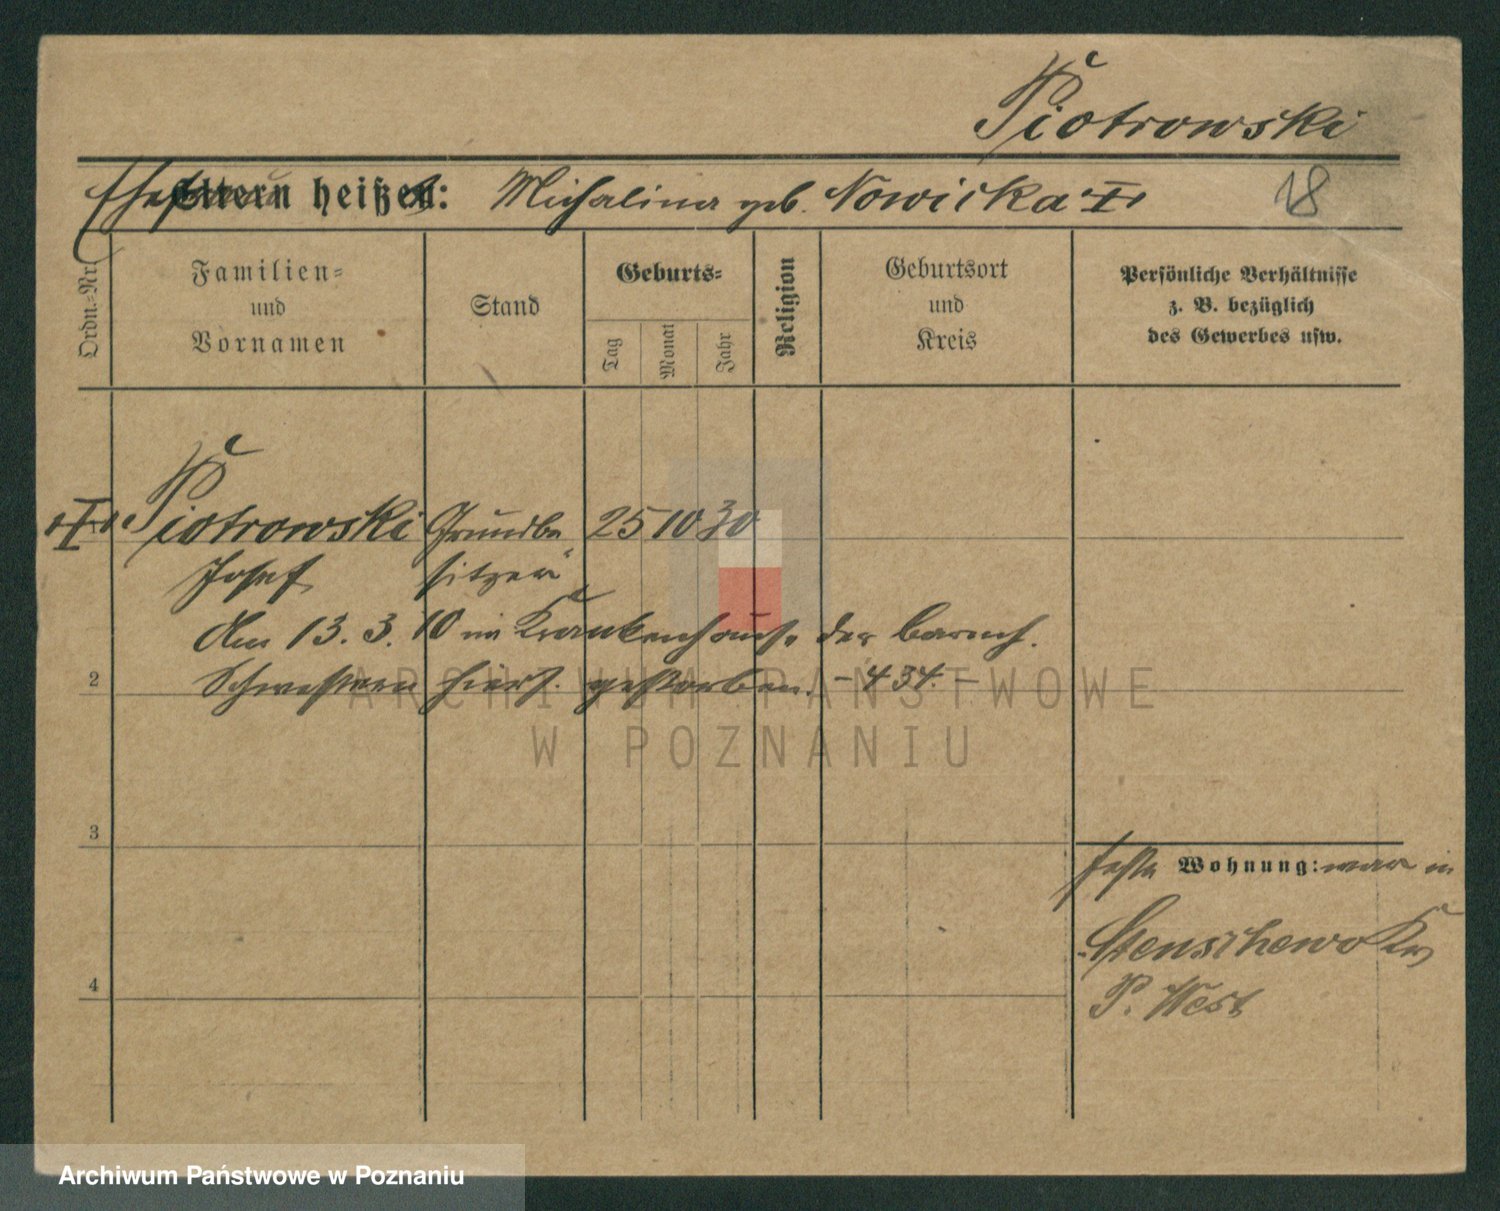 Piotrowski
Ehefrau Eltern heißen: Michalina geb. Nowicka 18
Ordn.-Nr. Familien- und Vornamen
Stand
Geburts-
Tag Monat Jahr
Religion
Geburtsort und Kreis
Persönliche Verhältnisse
z. B. bezüglich
des Gewerbes usw.
Piotrowski Grundbe 25 10 30
Josef sitzer
Am 13. 3. 10 im Krankenhause der barmh.
2 Schwestern hiers. gestorben. - 434. -
ARCHIWUM PAŃSTWOWE
W POZNANIU
3
feste Wohnung: war in
Stenschewo Kr
4
P. West
Archiwum Państwowe w Poznaniu